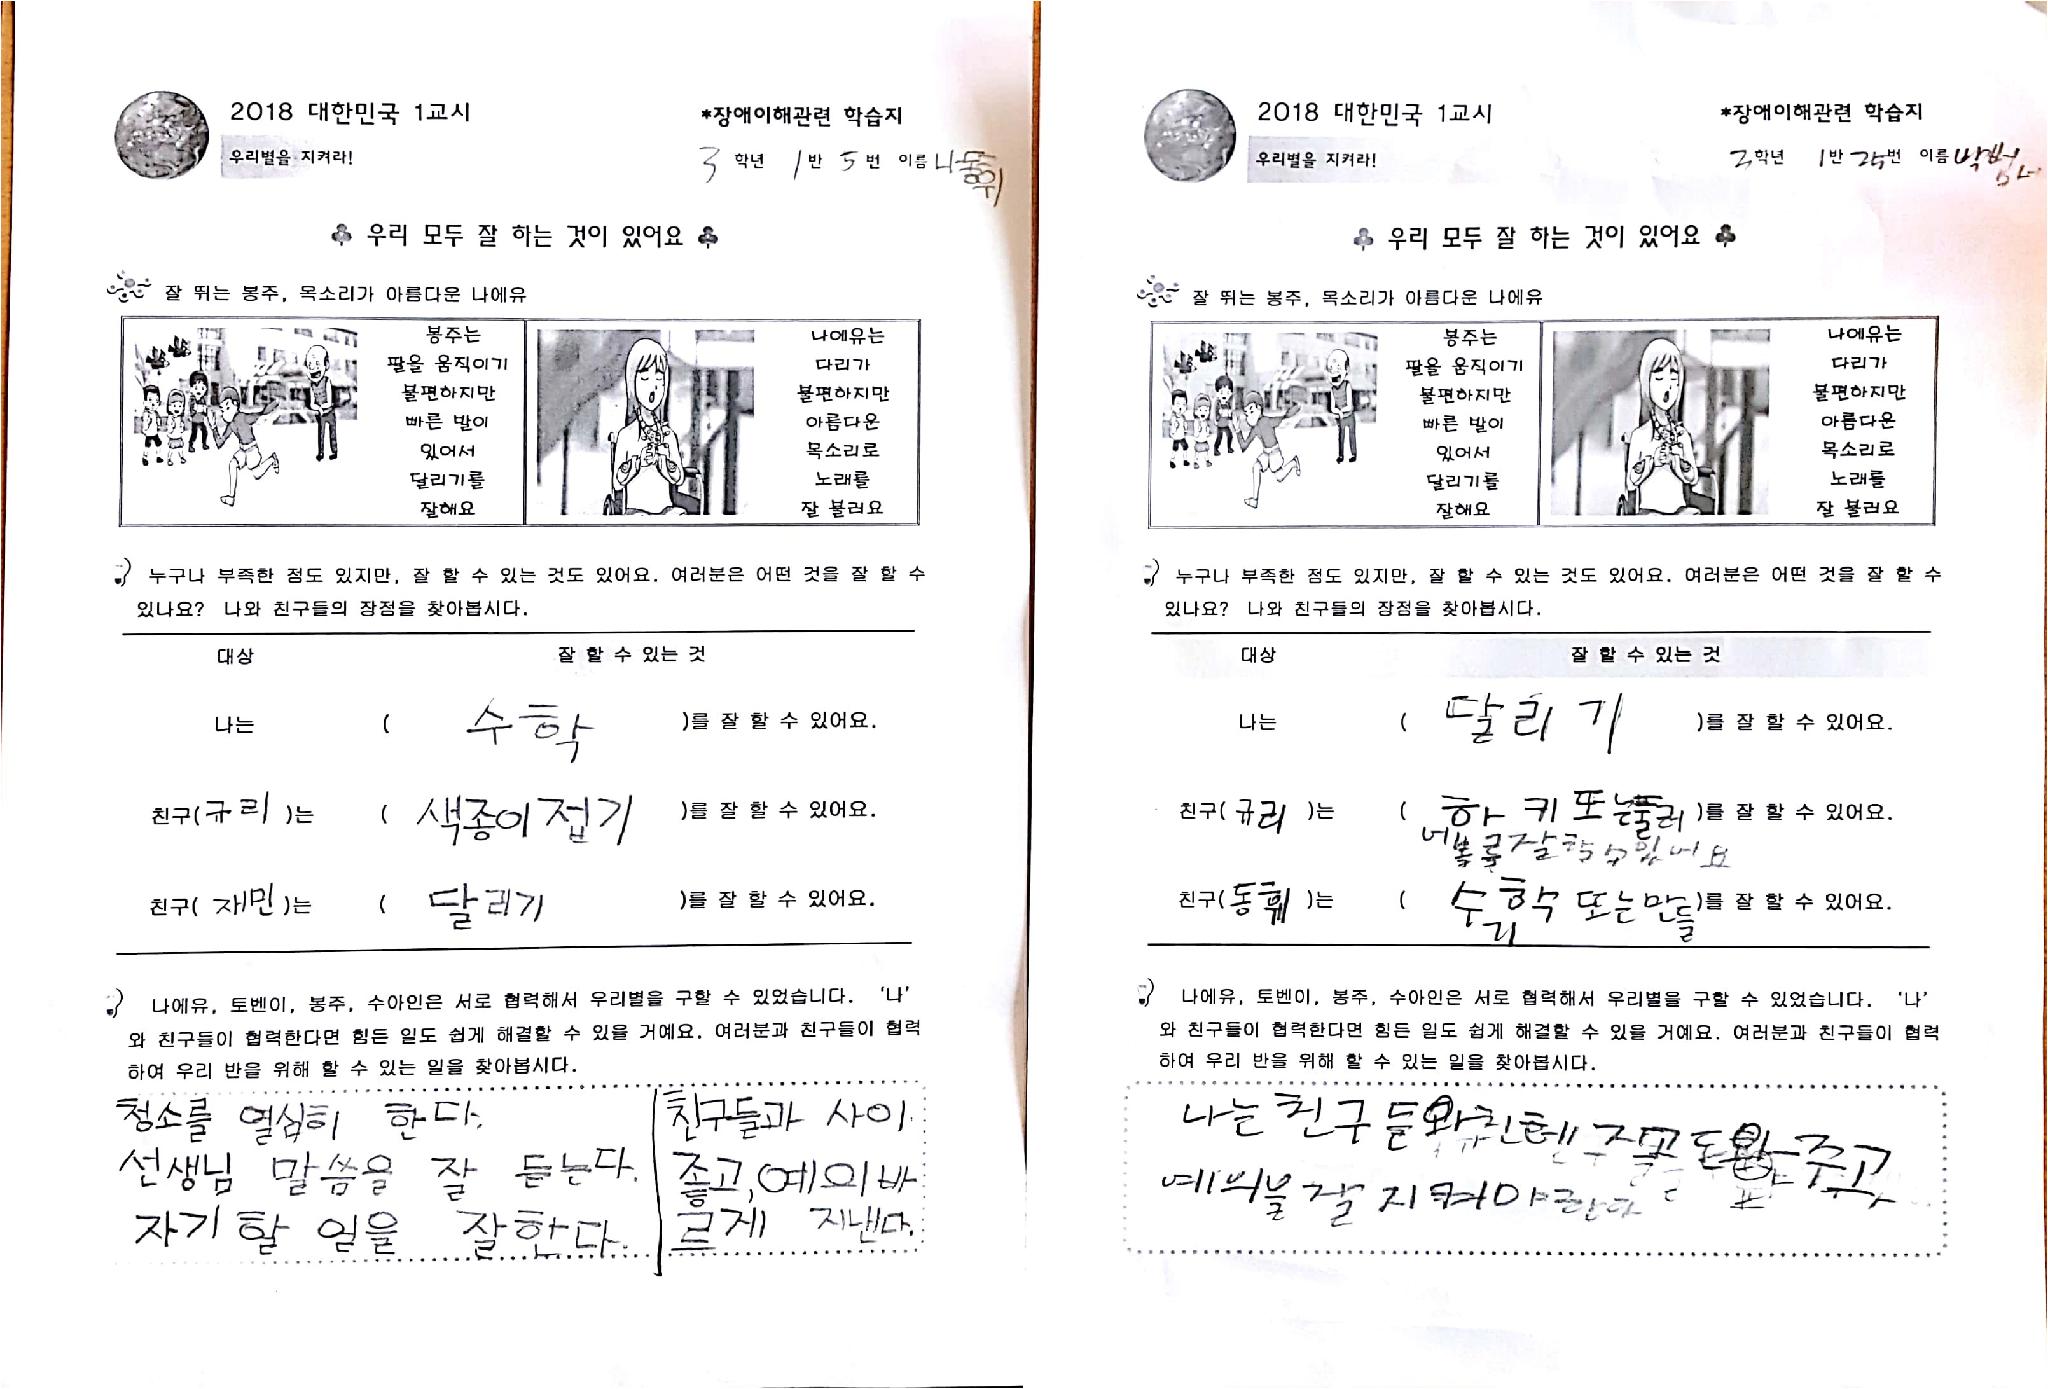 2018 대한민국 1교시
*장애이해관련 학습지
우리별을 지켜라!
3 학년 1반 5번 이름
♣ 우리 모두 잘 하는 것이 있어요 ♣
잘 뛰는 봉주, 목소리가 아름다운 나에유
봉주는
팔을 움직이기
불편하지만
빠른 발이
있어서
달리기를
잘해요
나에유는
다리가
불편하지만
아름다운
목소리로
노래를
잘 불러요
누구나 부족한 점도 있지만, 잘 할 수 있는 것도 있어요. 여러분은 어떤 것을 잘 할 수
있나요? 나와 친구들의 장점을 찾아봅시다.
대상 잘 할 수 있는 것
나는 ( 수학 )를 잘 할 수 있어요.
친구(규리)는 ( 색종이 접기 )를 잘 할 수 있어요.
친구(재민)는 ( 달리기 )를 잘 할 수 있어요.
나에유, 토벤이, 봉주, 수아인은 서로 협력해서 우리별을 구할 수 있었습니다. '나'
와 친구들이 협력한다면 힘든 일도 쉽게 해결할 수 있을 거예요. 여러분과 친구들이 협력
하여 우리 반을 위해 할 수 있는 일을 찾아봅시다.
청소를 열심히 한다.
선생님 말씀을 잘 듣는다.
자기 할 일을 잘한다.
친구들과 사이
좋고, 예의바
르게 지낸다.
2018 대한민국 1교시
*장애이해관련 학습지
우리별을 지켜라!
3학년 1반 25번 이름
♣ 우리 모두 잘 하는 것이 있어요 ♣
잘 뛰는 봉주, 목소리가 아름다운 나에유
봉주는
팔을 움직이기
불편하지만
빠른 발이
있어서
달리기를
잘해요
나에유는
다리가
불편하지만
아름다운
목소리로
노래를
잘 불러요
누구나 부족한 점도 있지만, 잘 할 수 있는 것도 있어요. 여러분은 어떤 것을 잘 할 수
있나요? 나와 친구들의 장점을 찾아봅시다.
대상 잘 할 수 있는 것
나는 ( 달리기 )를 잘 할 수 있어요.
친구(규리)는 ( 하키 또는 )를 잘 할 수 있어요.
잘할 수 있어요
친구(동훼)는 ( 수학 또는 만들 )를 잘 할 수 있어요.
리
나에유, 토벤이, 봉주, 수아인은 서로 협력해서 우리별을 구할 수 있었습니다. '나'
와 친구들이 협력한다면 힘든 일도 쉽게 해결할 수 있을 거예요. 여러분과 친구들이 협력
하여 우리 반을 위해 할 수 있는 일을 찾아봅시다.
나는 친구들 주고
예의를 잘 지켜야 한다